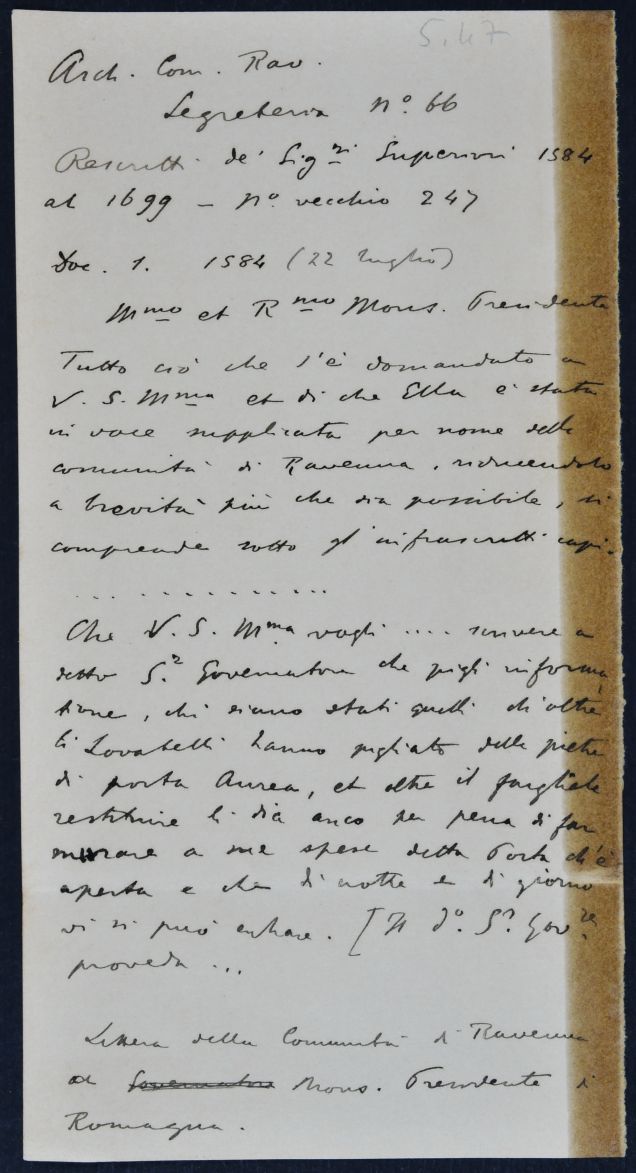 5.47
Arch. Com. Rav.
Segreteria n.º 66
Rescritti de' Sig.ri Superiori 1584
al 1699 – nº vecchio 247
Doc. 1. 1584 (22 luglio)
Ill.mo et R.mo Mons. Presidente
Tutto ciò che s'è domandato a
V. S. Ill.ma et di che Ella è stata
in voce supplicata per nome della
comunità di Ravenna, riducendolo
a brevità più che sia possibile, si
comprende sotto gl'infrascritti capi.
. . . . . . . . . . . . . .
Che V. S. Ill.ma vogli .... scrivere a
detto S.r Governatore che pigli informa
tione, chi siano stati quelli ch'oltre
li Lovatelli hanno pigliato delle pietre
di porta Aurea, et oltre il fargliele
restituire li dia anco per pena di far
murare a sue spese detta Porta ch'è
aperta e che di notte e di giorno
vi si può entrare. [Il d.º S.r Gov.re
proveda ...
Lettera della Comunità di Ravenna
al Governatore Mons. Presidente di
Romagna.